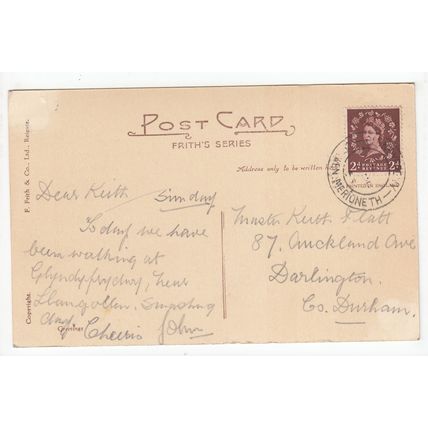 POST CARD
FRITH'S SERIES
Address only to be written
F. Frith & Co., Ltd., Reigate.
Copyright.
2d POSTAGE REVENUE 2d
MERIONETH
Dear Keith Sunday
Today we have
been walking at
Glyndyfrydwy, near
Llangollen. Smashing
day.
Cheerio John
Master Keith Flatt
87, Auckland Ave
Darlington.
Co. Durham.